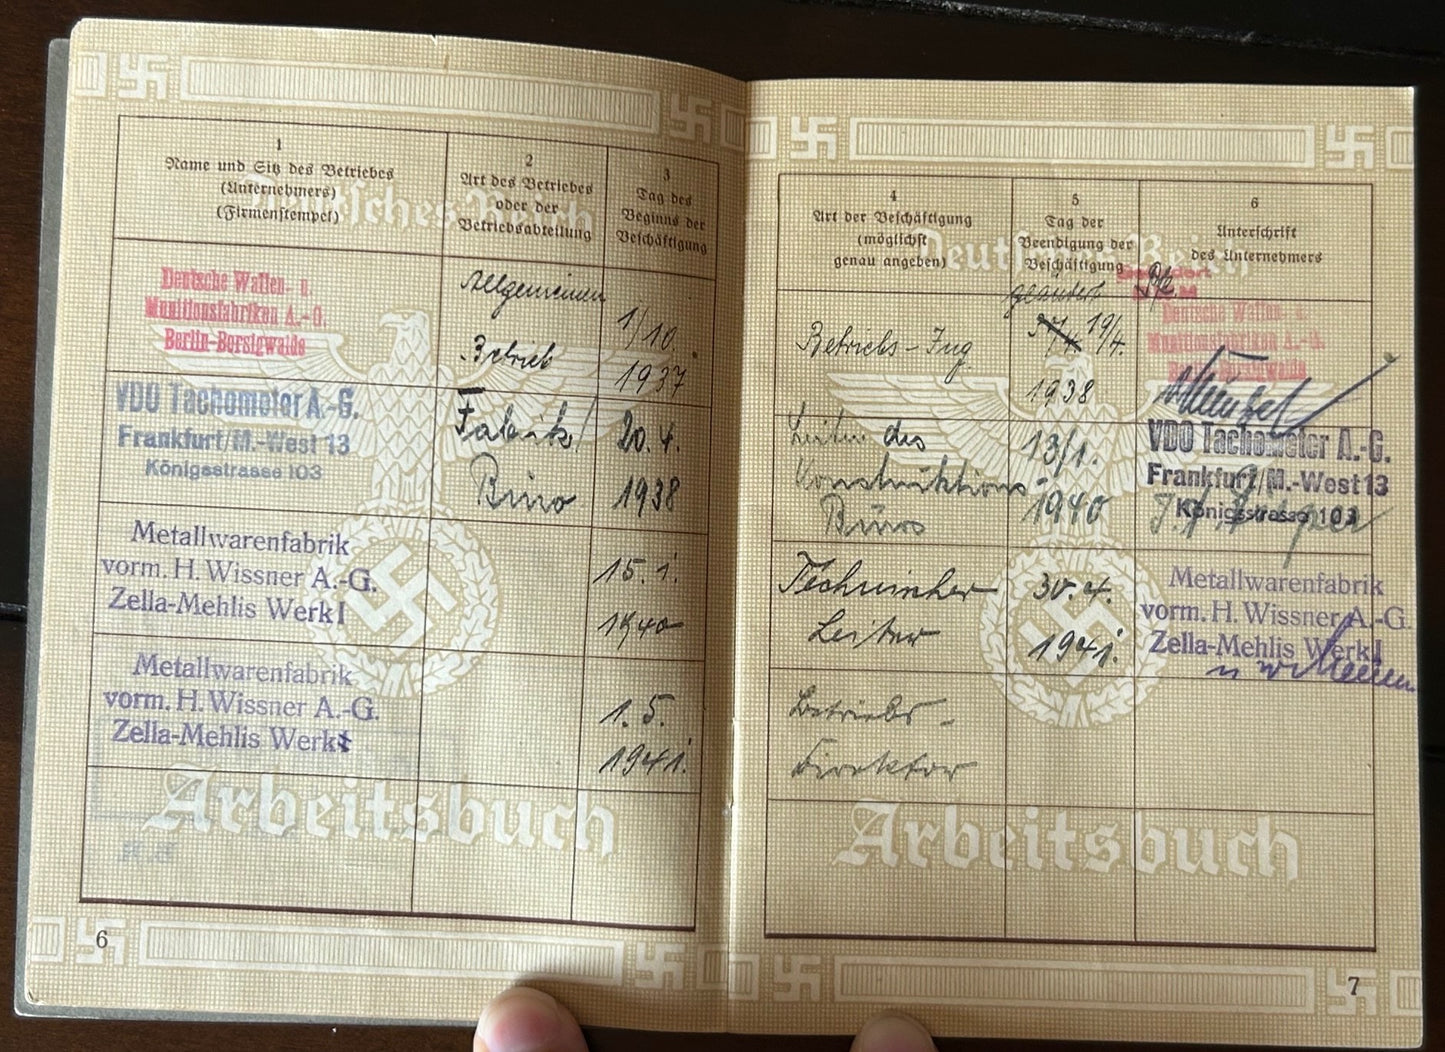 1
Name und Sitz des Betriebes
(Unternehmers)
(Firmenstempel)
2
Art des Betriebes
oder der
Betriebsabteilung
3
Tag des
Beginns der
Beschäftigung
Deutsches Reich
Deutsche Waffen- u.
Munitionsfabriken A.-G.
Berlin-Borsigwalde
Allgemeiner
Betrieb
1/10.
1937
VDO Tachometer A.-G.
Frankfurt/M.-West 13
Königsstrasse 103
Fabrik/
Büro
20.4.
1938
Metallwarenfabrik
vorm. H. Wissner A.-G.
Zella-Mehlis Werk I
15. 1.
1940
Metallwarenfabrik
vorm. H. Wissner A.-G.
Zella-Mehlis Werk I
1. 5.
1941.
Arbeitsbuch
6
4
Art der Beschäftigung
(möglichst
genau angeben)
5
Tag der
Beendigung der
Beschäftigung
6
Unterschrift
des Unternehmers
Deutsches Reich
geändert
Betriebs-Ing.
19/4.
1938
Deutsche Waffen- u.
Munitionsfabriken A.-G.
Berlin-Borsigwalde
Leiter des
Konstruktions-
Büros
13/1.
1940
VDO Tachometer A.-G.
Frankfurt/M.-West 13
Königsstrasse 103
Technischer
Leiter
30.4.
1941.
Metallwarenfabrik
vorm. H. Wissner A.-G.
Zella-Mehlis Werk I
Betriebs-
Direktor
Arbeitsbuch
7